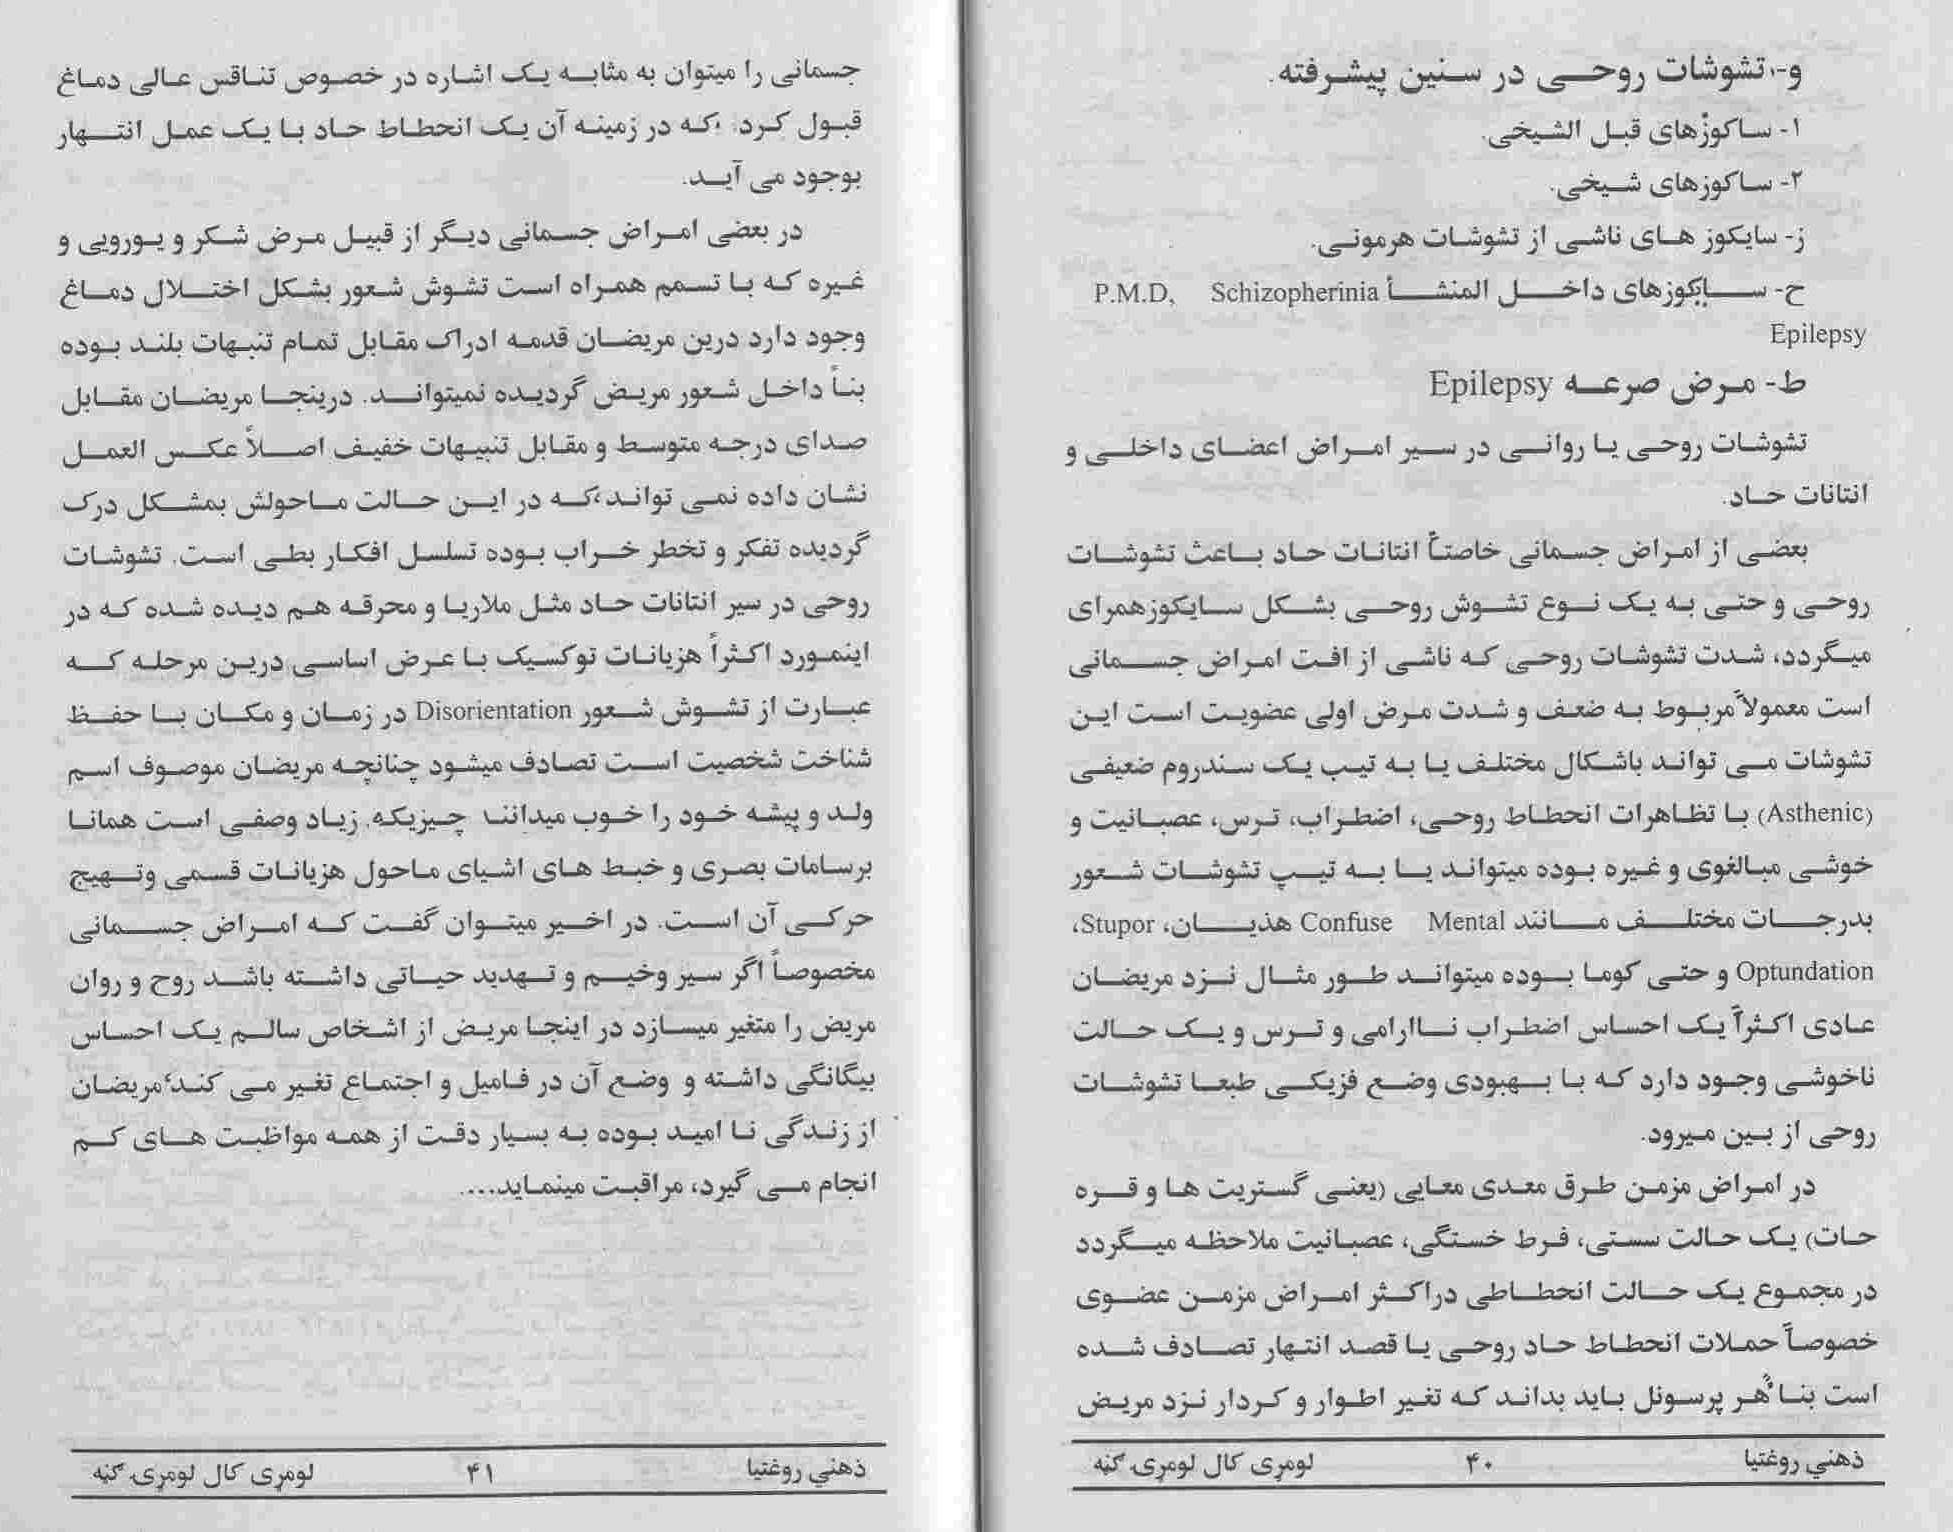 و-، تشوشات روحی در سنین پیشرفته.
۱- ساکوزهای قبل الشیخی.
۲- ساکوزهای شیخی.
ز- سایکوز های ناشی از تشوشات هرمونی.
ح- سایکوزهای داخل المنشأ P.M.D, Schizopherinia
Epilepsy
ط- مرض صرعه Epilepsy
تشوشات روحی یا روانی در سیر امراض اعضای داخلی و
انتانات حاد.
بعضی از امراض جسمانی خاصتاً انتانات حاد باعث تشوشات
روحی و حتی به یک نوع تشوش روحی بشکل سایکوزهمرای
میگردد، شدت تشوشات روحی که ناشی از افت امراض جسمانی
است معمولاً مربوط به ضعف و شدت مرض اولی عضویت است این
تشوشات می تواند باشکال مختلف یا به تیپ یک سندروم ضعیفی
(Asthenic) با تظاهرات انحطاط روحی، اضطراب، ترس، عصبانیت و
خوشی مبالغوی و غیره بوده میتواند یا به تیپ تشوشات شعور
بدرجات مختلف مانند Confuse Mental هذیان، Stupor،
Optundation و حتی کوما بوده میتواند طور مثال نزد مریضان
عادی اکثراً یک احساس اضطراب ناارامی و ترس و یک حالت
ناخوشی وجود دارد که با بهبودی وضع فزیکی طبعا تشوشات
روحی از بین میرود.
در امراض مزمن طرق معدی معایی (یعنی گستریت ها و قره
حات) یک حالت سستی، فرط خستگی، عصبانیت ملاحظه میگردد
در مجموع یک حالت انحطاطی دراکثر امراض مزمن عضوی
خصوصاً حملات انحطاط حاد روحی یا قصد انتهار تصادف شده
است بناً هر پرسونل باید بداند که تغیر اطوار و کردار نزد مریض
ذهني روغتیا ۴۰ لومړی کال لومړی ګڼه
جسمانی را میتوان به مثابه یک اشاره در خصوص تناقس عالی دماغ
قبول کرد. ،که در زمینه آن یک انحطاط حاد با یک عمل انتهار
بوجود می آید.
در بعضی امراض جسمانی دیگر از قبیل مرض شکر و یورویی و
غیره که با تسمم همراه است تشوش شعور بشکل اختلال دماغ
وجود دارد درین مریضان قدمه ادراک مقابل تمام تنبهات بلند بوده
بناً داخل شعور مریض گردیده نمیتواند. درینجا مریضان مقابل
صدای درجه متوسط و مقابل تنبیهات خفیف اصلاً عکس العمل
نشان داده نمی تواند،که در این حالت ماحولش بمشکل درک
گردیده تفکر و تخطر خراب بوده تسلسل افکار بطی است. تشوشات
روحی در سیر انتانات حاد مثل ملاریا و محرقه هم دیده شده که در
اینمورد اکثراً هزیانات توکسیک با عرض اساسی درین مرحله که
عبارت از تشوش شعور Disorientation در زمان و مکان با حفظ
شناخت شخصیت است تصادف میشود چنانچه مریضان موصوف اسم
ولد و پیشه خود را خوب میدانند چیزیکه زیاد وصفی است همانا
برسامات بصری و خبط های اشیای ماحول هزیانات قسمی وتهیج
حرکی آن است. در اخیر میتوان گفت که امراض جسمانی
مخصوصاً اگر سیر وخیم و تهدید حیاتی داشته باشد روح و روان
مریض را متغیر میسازد در اینجا مریض از اشخاص سالم یک احساس
بیگانگی داشته و وضع آن در فامیل و اجتماع تغیر می کند؛مریضان
از زندگی نا امید بوده به بسیار دقت از همه مواظبت های کم
انجام می گیرد، مراقبت مینماید....
ذهني روغتیا ۴۱ لومړی کال لومړی ګڼه